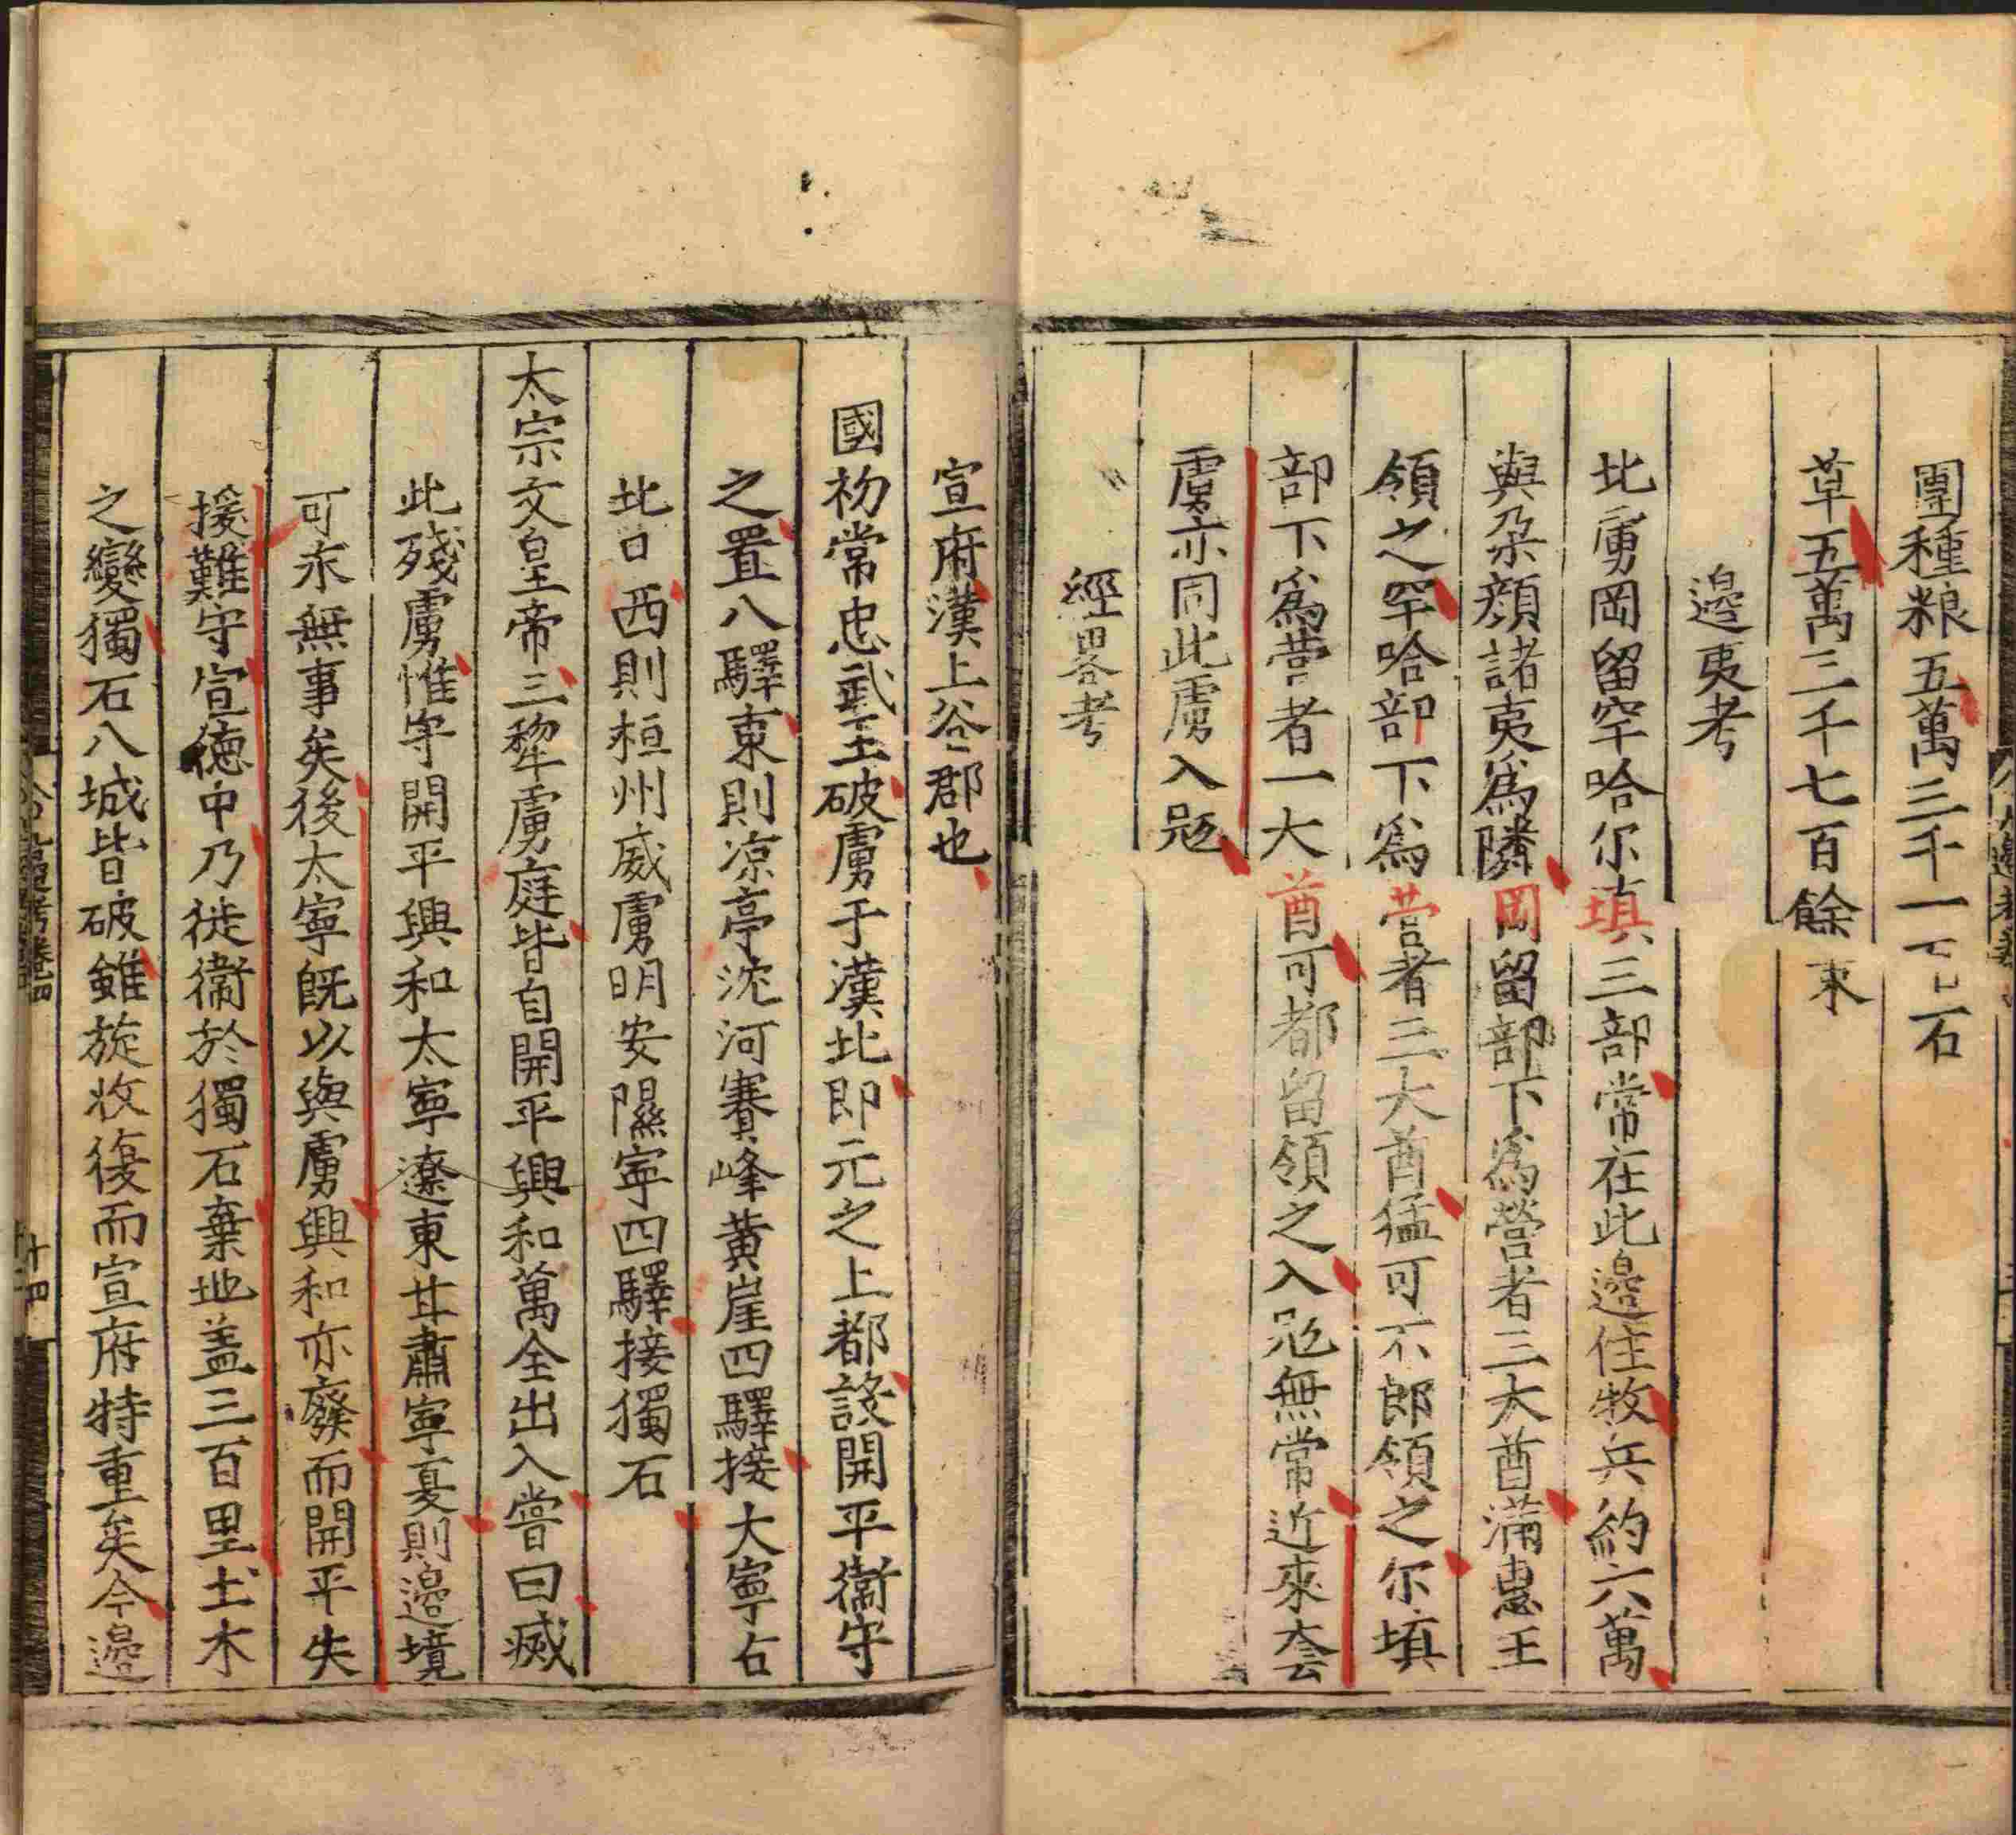 團種粮五萬三千一百 石
草五萬三千七百餘束
邊夷考
北虜岡留罕哈尔填三部常在此邊住牧兵約六萬
與朶顔諸夷爲隣岡留部下爲營者三大酋滿惠王
領之罕哈部下爲營者三大酋猛可不郎領之尔填
部下爲營者一大酋可都留領之入冦無常近來套
虜亦同此虜入冦
經畧考
宣府漢上谷郡也
國初常忠武王破虜于漠北即元之上都設開平衛守
之置八驛東則凉亭沈河賽峰黃崖四驛接大寧古
北口西則桓州威虜明安隰寧四驛接獨石
太宗文皇帝三犂虜庭皆自開平興和萬全出入嘗曰滅
此殘虜惟守開平興和大寧遼東甘肅寧夏則邊境
可永無事矣後太寧既以與虜興和亦廢而開平失
援難守宣德中乃徙衛於獨石棄地盖三百里土木
之變獨石八城皆破雖旋收復而宣府特重矣今邊
十四